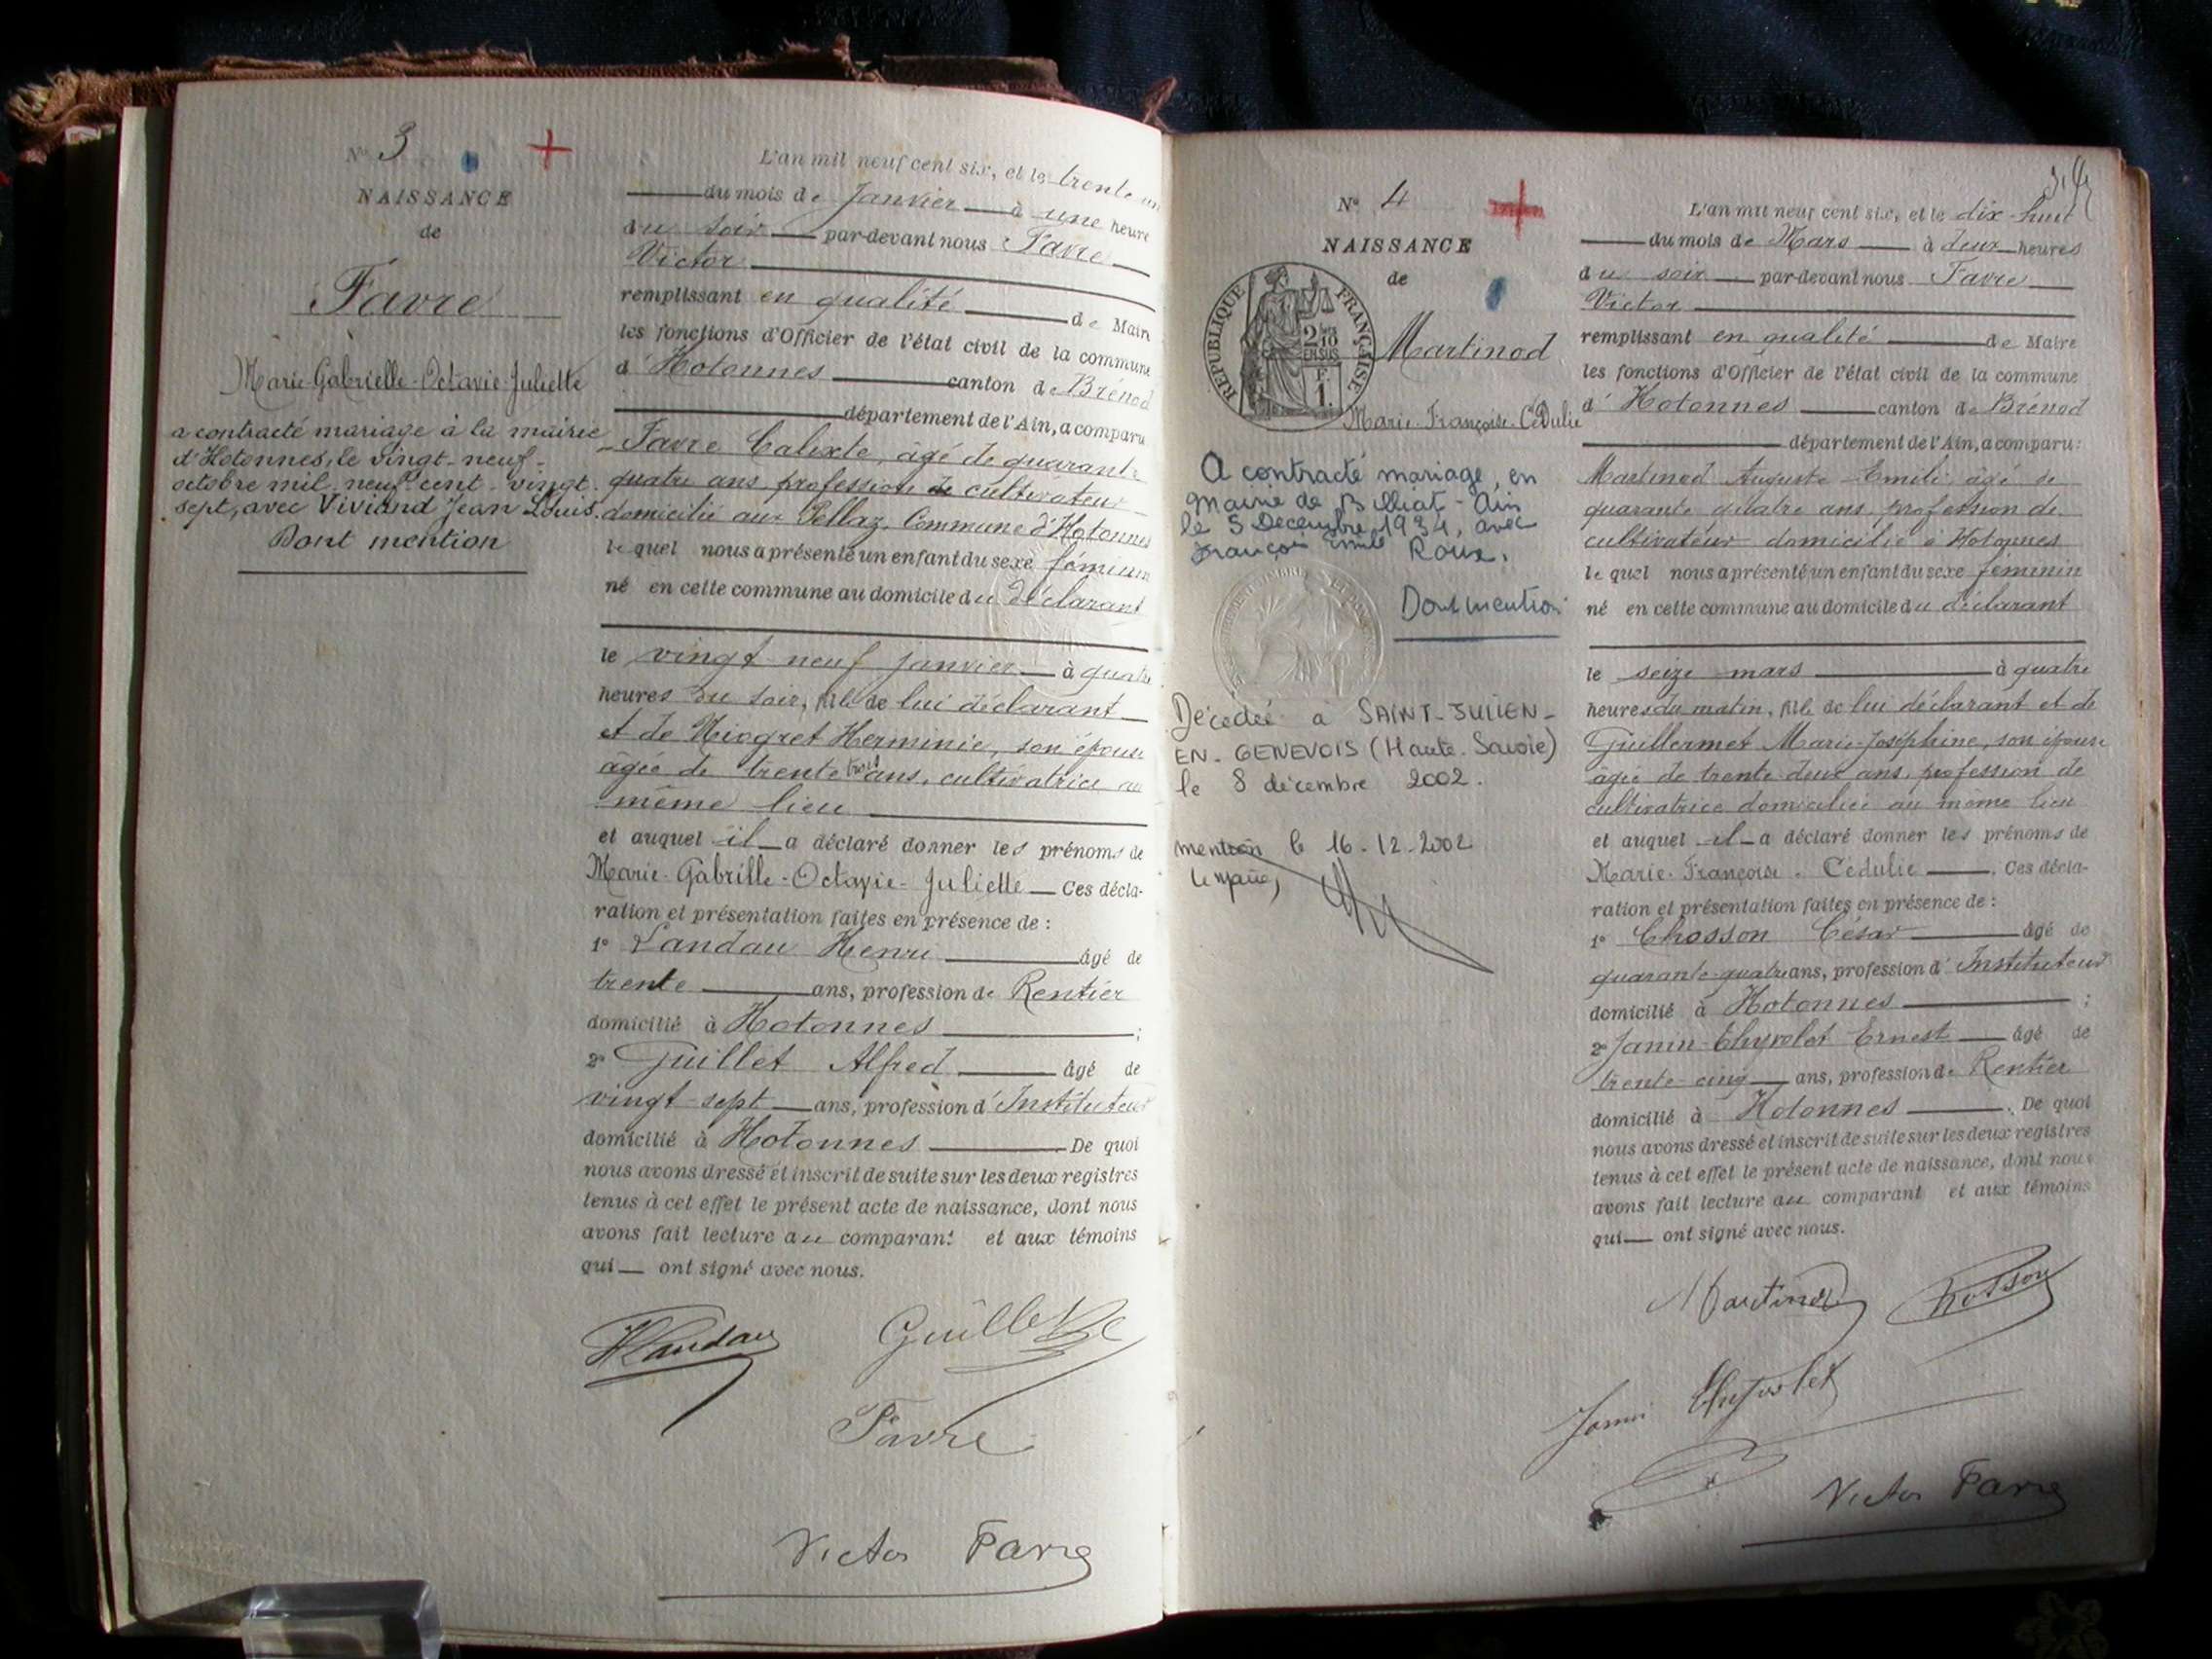 N° 3
NAISSANCE
de
Favre
Marie-Gabrielle-Octavie-Juliette
a contracté mariage à la mairie
d'Hotonnes, le vingt-neuf-
octobre mil-neuf-cent-vingt-
sept, avec Viviand Jean Louis.
Dont mention
L'an mil neuf cent six, et le trente un
du mois de Janvier à une heure
du soir par-devant nous Favre
Victor
remplissant en qualité de Maire
les fonctions d'Officier de l'état civil de la commune
d'Hotonnes canton de Brénod
département de l'Ain, a comparu
Favre Calixte, âgé de quarante
quatre ans profession de cultivateur
domicilié aux Pellaz, Commune d'Hotonnes
lequel nous a présenté un enfant du sexe féminin
né en cette commune au domicile du déclarant
le vingt neuf janvier à quatre
heures du soir, fille de lui déclarant
et de Niogret Herminie, son épouse
âgée de trente trois ans, cultivatrice au
même lieu
et auquel il a déclaré donner les prénoms de
Marie-Gabrille-Octavie-Juliette Ces décla-
ration et présentation faites en présence de :
1° Landau Henri âgé de
trente ans, profession de Rentier
domicilié à Hotonnes ;
2° Guillet Alfred âgé de
vingt-sept ans, profession d'Instituteur
domicilié à Hotonnes De quoi
nous avons dressé et inscrit de suite sur les deux registres
tenus à cet effet le présent acte de naissance, dont nous
avons fait lecture au comparant et aux témoins
qui ont signé avec nous.
HLandau Guillet
Favre
Victor Favre
N° 4
NAISSANCE
de
REPUBLIQUE FRANÇAISE
2/10
EN SUS
F.
1.
Martinod
Marie-Françoise-Cédulie
A contracté mariage, en
mairie de Billiat-Ain
le 5 Décembre 1934, avec
François Emile Roux.
Dont mention
Décédée à SAINT-JULIEN-
EN-GENEVOIS (Haute-Savoie)
le 8 décembre 2002.
mention le 16-12-2002
Le Maire,
L'an mil neuf cent six, et le dix-huit
du mois de Mars à deux heures
du soir par-devant nous Favre
Victor
remplissant en qualité de Maire
les fonctions d'Officier de l'état civil de la commune
d'Hotonnes canton de Brénod
département de l'Ain, a comparu :
Martinod Auguste-Emile âgé de
quarante quatre ans, profession de
cultivateur domicilié à Hotonnes
lequel nous a présenté un enfant du sexe féminin
né en cette commune au domicile du déclarant
le seize mars à quatre
heures du matin, fille de lui déclarant et de
Guillermet Marie-Joséphine, son épouse
âgée de trente deux ans, profession de
cultivatrice domiciliée au même lieu
et auquel il a déclaré donner les prénoms de
Marie-Françoise-Cédulie . Ces décla-
ration et présentation faites en présence de :
1° Chosson César âgé de
quarante-quatre ans, profession d'Instituteur
domicilié à Hotonnes ;
2° Janin-Thyvolet Ernest âgé de
trente-cinq ans, profession de Rentier
domicilié à Hotonnes . De quoi
nous avons dressé et inscrit de suite sur les deux registres
tenus à cet effet le présent acte de naissance, dont nous
avons fait lecture au comparant et aux témoins
qui ont signé avec nous.
Martinod
Janin Thyvolet
Victor Favre